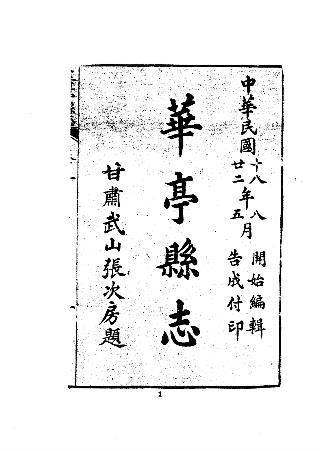 中華民國十八年八月開始編輯
廿二年五月告成付印
華亭縣志
甘肅武山張次房題
1